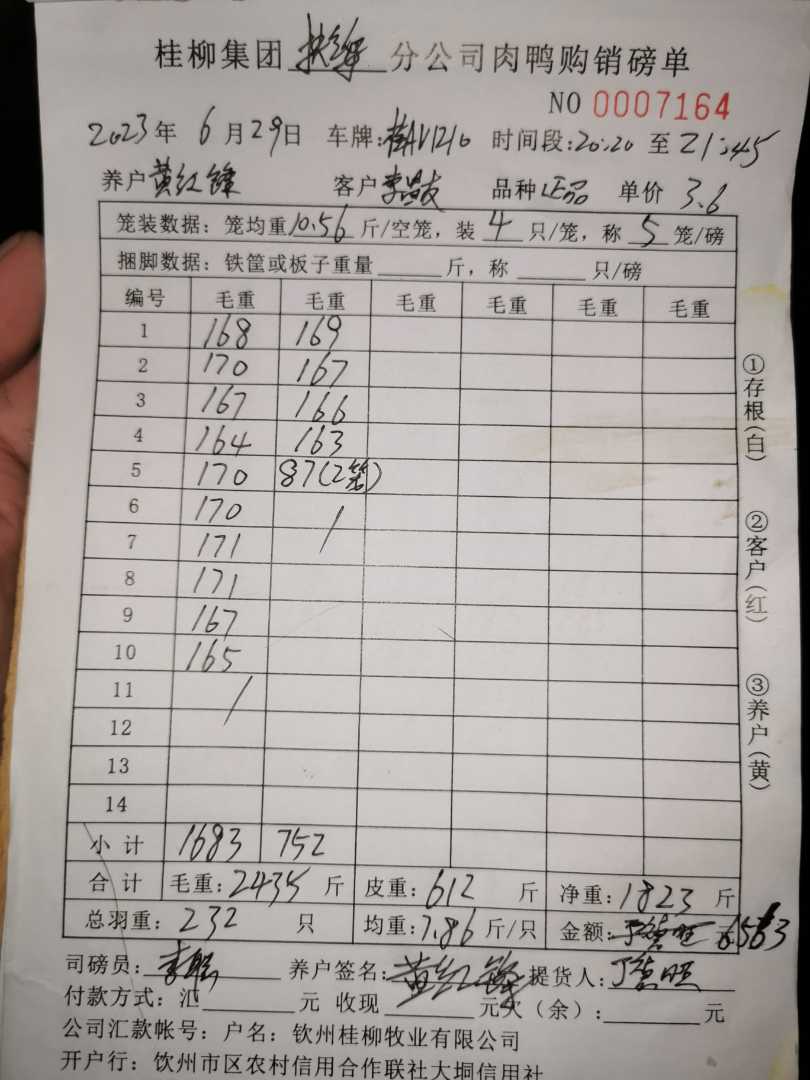 桂柳集团 扶绥 分公司肉鸭购销磅单
NO 0007164
2023年 6月29日 车牌:桂AV1210 时间段:20:20 至 21:45
养户 黄红锋 客户 李 友 品种 正品 单价 3.6
笼装数据：笼均重10.56斤/空笼，装 4 只/笼，称 5 笼/磅
捆脚数据：铁筐或板子重量 斤，称 只/磅
编号 毛重 毛重 毛重 毛重 毛重 毛重
1 168 169
2 170 167
3 167 166
4 164 163
5 170 87(2笼)
6 170 /
7 171
8 171
9 167
10 165
11 /
12
13
14
小计 1683 752
合计 毛重:2435 斤 皮重:612 斤 净重:1823 斤
总羽重：232 只 均重:7.86斤/只 金额: 元 6563
司磅员: 李 养户签名: 黄红锋 提货人: 丁 旺
付款方式：汇 元 收现 元欠（余）: 元
公司汇款帐号：户名：钦州桂柳牧业有限公司
开户行：钦州市区农村信用合作联社大垌信用社
①存根(白)
②客户(红)
③养户(黄)